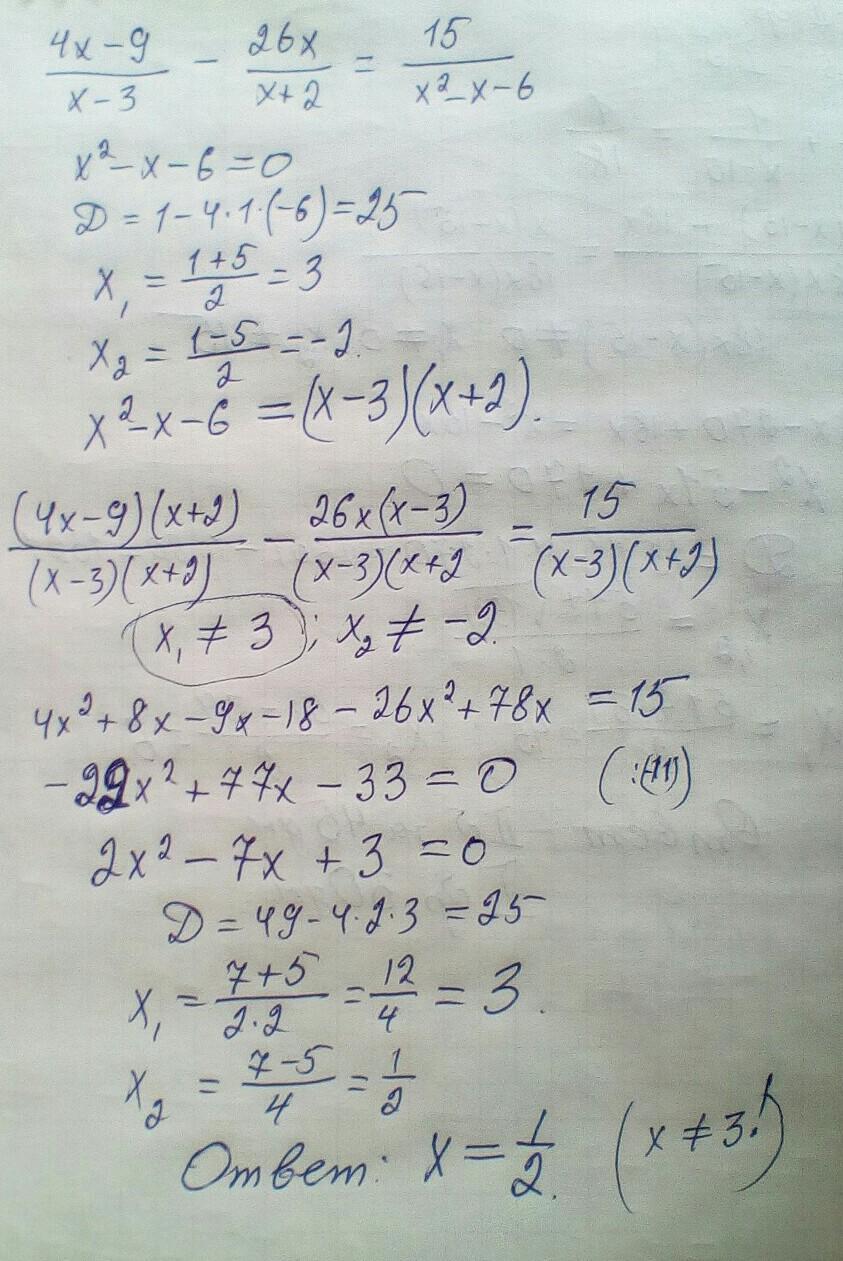 (4x-9)/(x-3) - 26x/(x+2) = 15/(x²-x-6)
x²-x-6=0
Д = 1-4·1·(-6)=25
x₁ = (1+5)/2 = 3
x₂ = (1-5)/2 = -2.
x²-x-6 = (x-3)(x+2).
(4x-9)(x+2)/(x-3)(x+2) - 26x(x-3)/(x-3)(x+2 = 15/(x-3)(x+2)
x₁ ≠ 3; x₂ ≠ -2.
4x²+8x-9x-18-26x²+78x = 15
-22x²+77x-33=0 (:(-11))
2x²-7x+3=0
Д = 49-4·2·3 = 25
x₁ = (7+5)/(2·2) = 12/4 = 3.
x₂ = (7-5)/4 = 1/2
Ответ: x = 1/2. (x ≠ 3!)